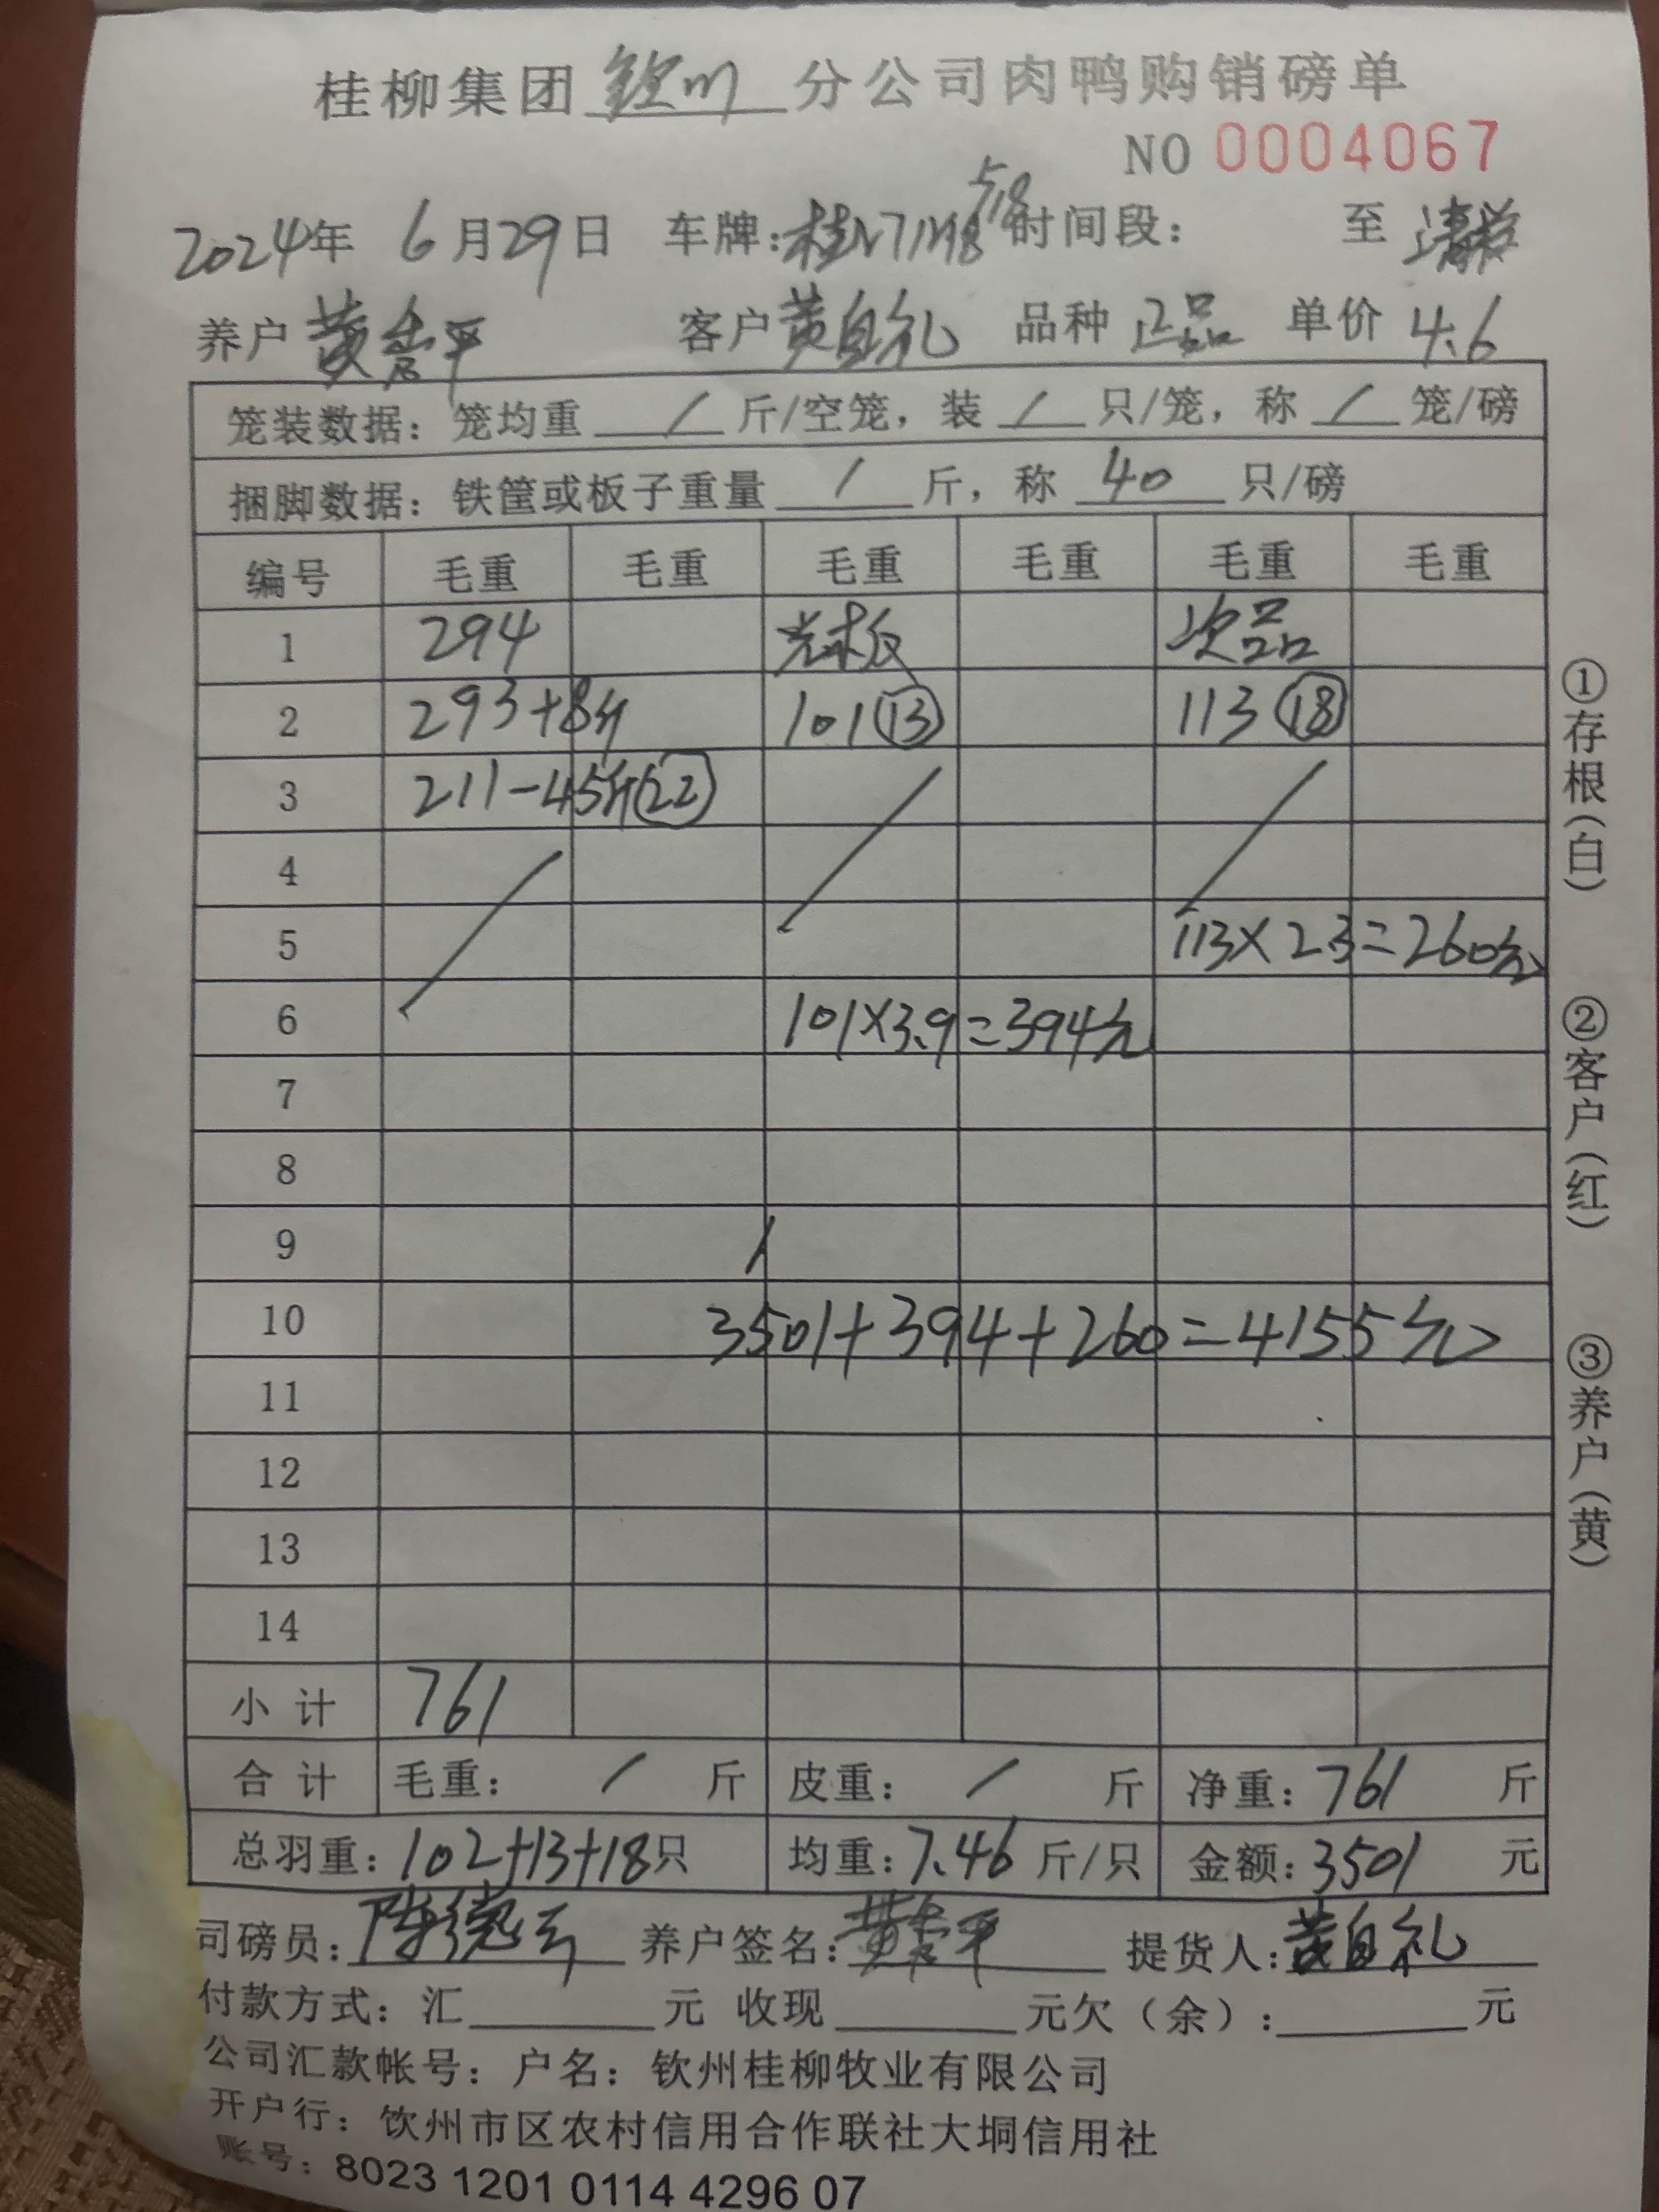 桂柳集团 钦州 分公司肉鸭购销磅单
NO 0004067
2024年 6月29日 车牌: 时间段: 至
养户 客户 黄自礼 品种 正品 单价 4.6
笼装数据: 笼均重 / 斤/空笼, 装 / 只/笼, 称 / 笼/磅
捆脚数据: 铁筐或板子重量 / 斤, 称 40 只/磅
编号 毛重 毛重 毛重 毛重 毛重 毛重
1 294 光板 次品
2 293+8斤 101 13 113 18
3 211-45斤 22
4
5 113×23=260元
6 101×3.9=394元
7
8
9
10 3501+394+260=4155元
11
12
13
14
小计 761
合计 毛重: / 斤 皮重: / 斤 净重: 761 斤
总羽重: 102+13+18只 均重: 7.46 斤/只 金额: 3501 元
司磅员: 陈德云 养户签名: 提货人: 黄自礼
付款方式: 汇 元 收现 元欠(余): 元
公司汇款帐号: 户名: 钦州桂柳牧业有限公司
开户行: 饮州市区农村信用合作联社大垌信用社
账号: 8023 1201 0114 4296 07
①存根(白)
②客户(红)
③养户(黄)